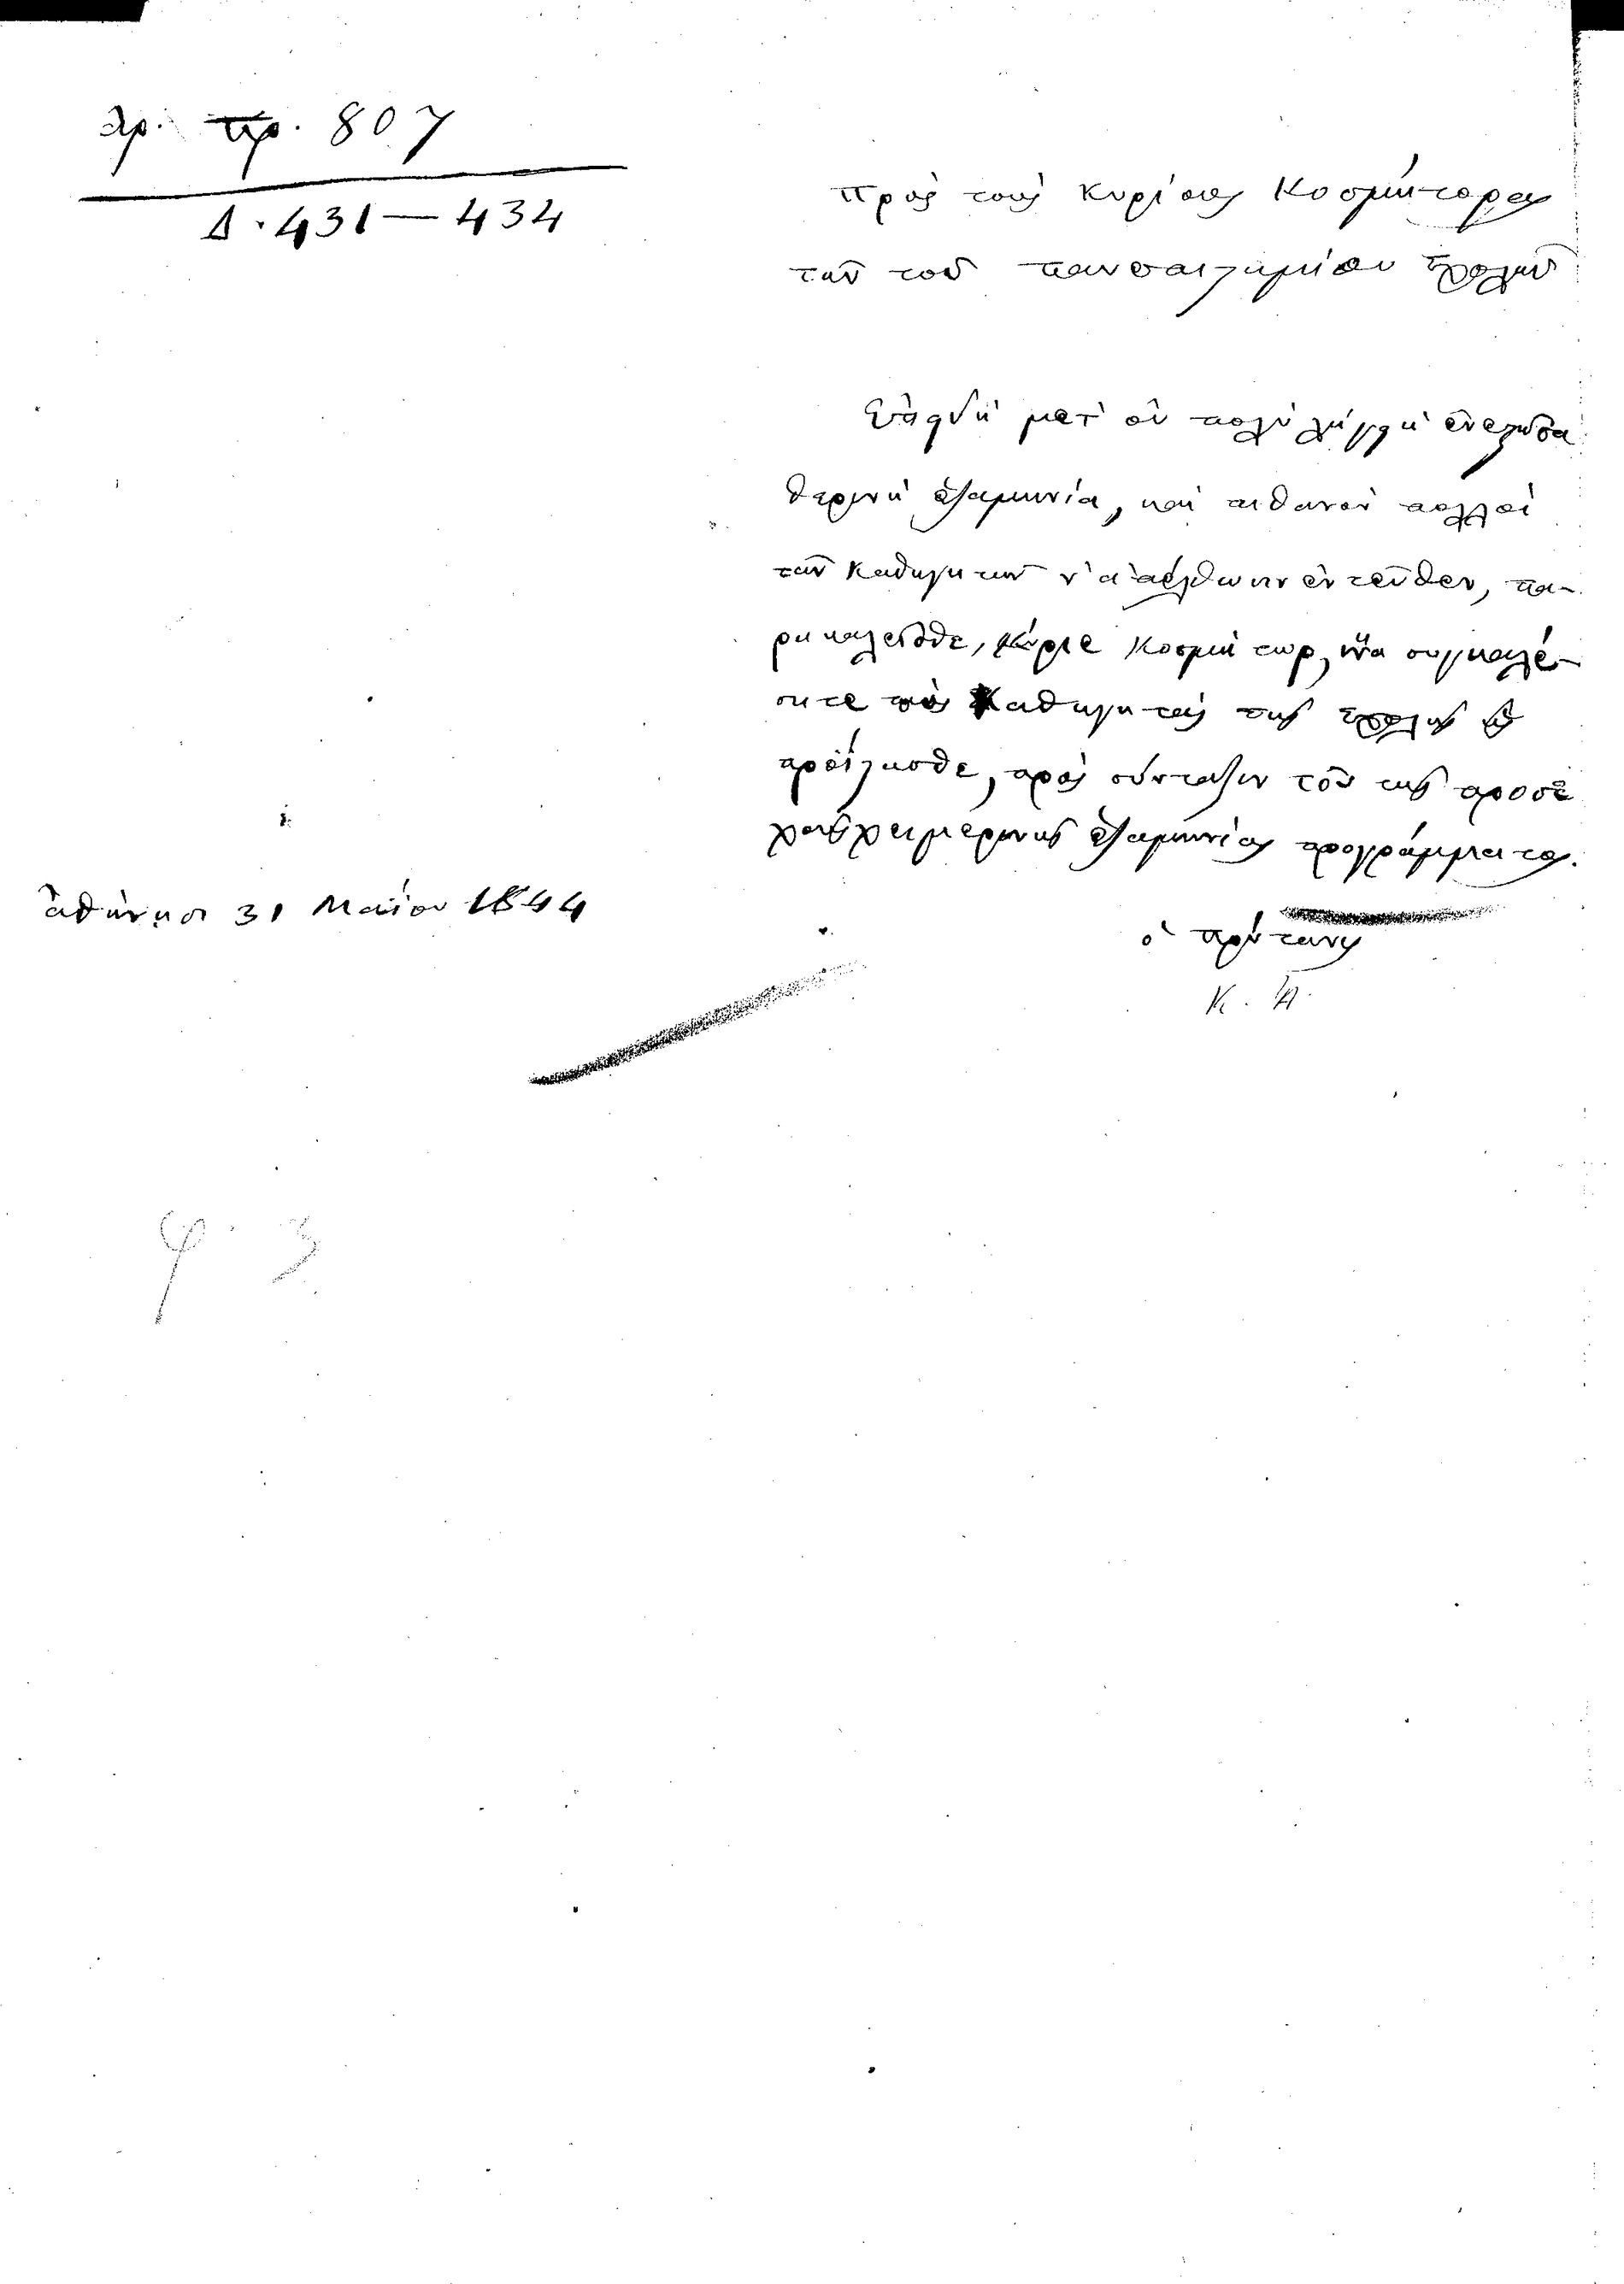 Ἀρ. πρ. 807
Δ. 431 — 434
Πρὸς τοὺς Κυρίους Κοσμήτορας
τῶν τοῦ πανεπιστημίου Σχολῶν
Ἐπειδὴ μετ' οὐ πολὺ λήγει ἡ ἐνεστῶσα
θερινὴ ἑξαμηνία, καὶ πιθανὸν πολλοὶ
τῶν Καθηγητῶν ν' ἀπέλθωσιν ἐντεῦθεν, πα-
ρακαλεῖσθε, Κύριε Κοσμήτωρ, ἵνα συγκαλέ-
σητε τοὺς Καθηγητὰς τῆς Σχολῆς ἧς
προΐστασθε, πρὸς σύνταξιν τοῦ τῆς προσε
χοῦς χειμερινῆς ἑξαμηνίας προγράμματος.
Ἀθήνησι 31 Μαΐου 1844
ὁ Πρύτανις
φ. 3